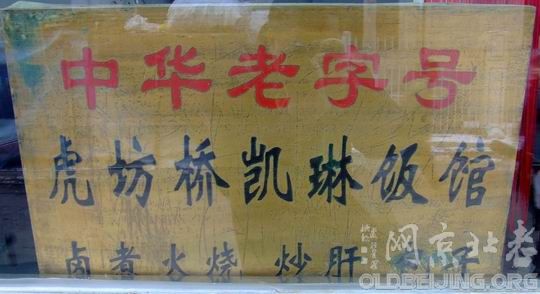 中华老字号
虎坊桥凯琳饭馆
卤煮火烧 炒肝
老北京网
OLDBEIJING.ORG